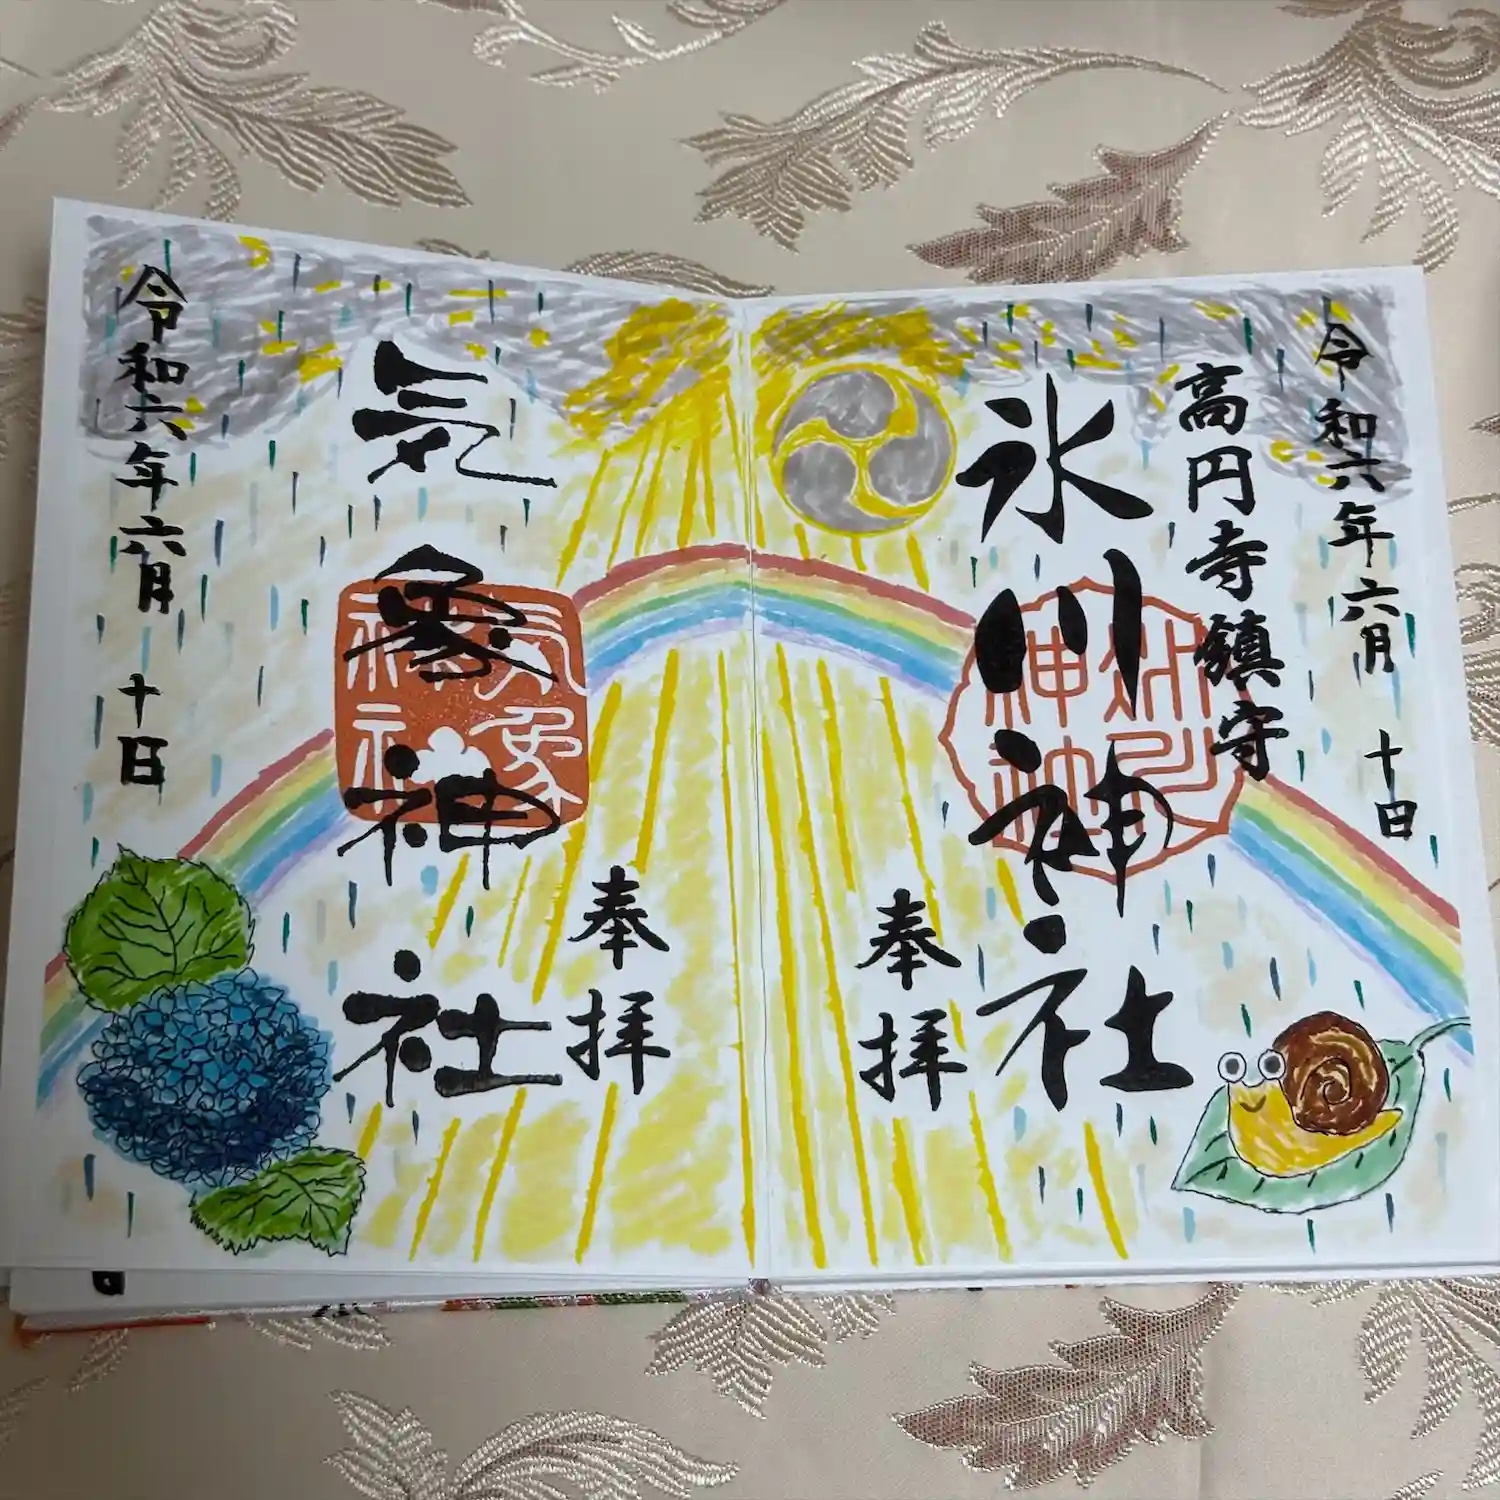 令和六年六月十日
高円寺鎮守
氷川神社
奉拝
奉拝
気象神社
令和六年六月十日